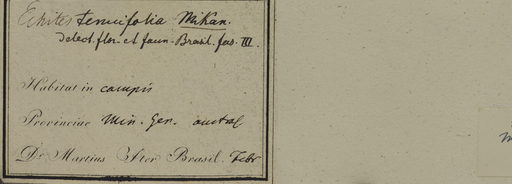 Echites tenuifolia Mikan.
delect. flor. et faun. Brasil. fas. III.
Habitat in campis
Provinciae Min. Gen. austral
Dr. Martius Iter Brasil. Febr